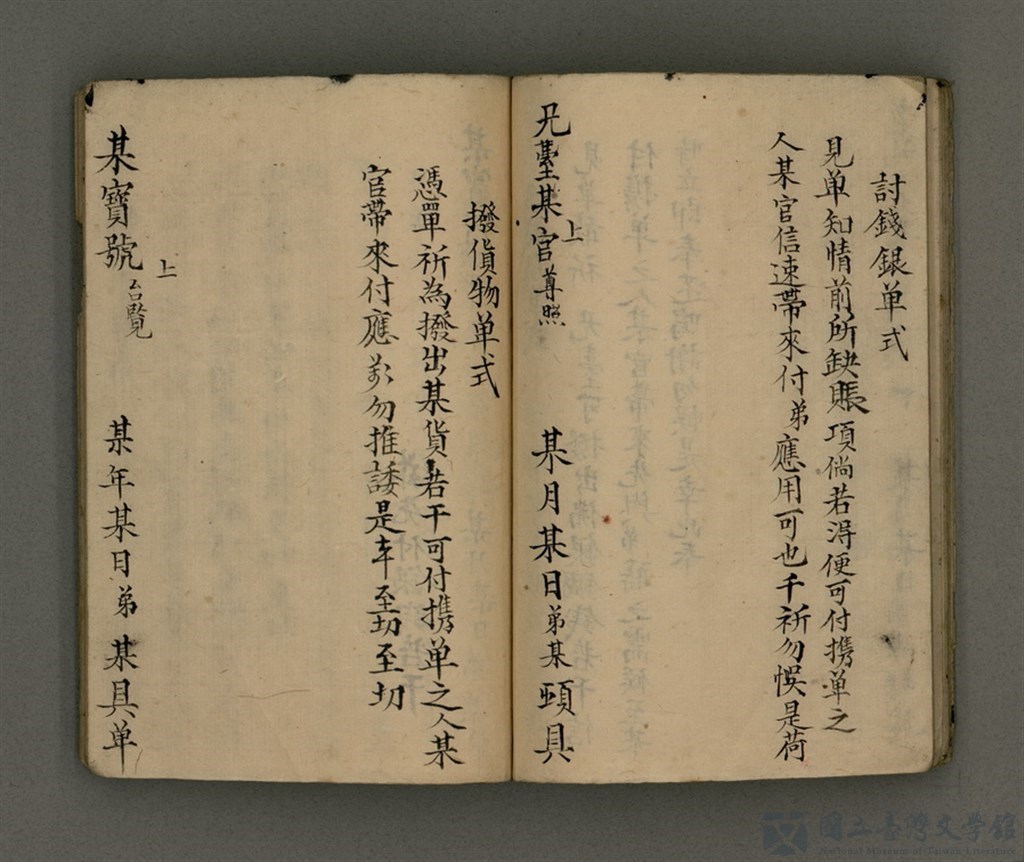 討錢銀单式
見单知情前所缺賬項倘若淂便可付携单之
人某官信速帶來付弟應用可也千祈勿悮是荷
上
兄臺某官尊照
某月某日弟某頓具
撥貨物单式
憑單祈為撥出某貨若干可付携单之人某
官帶來付應羕勿推諉是幸至切至切
上
某寶號台覽
某年某日弟某具单
國立臺灣文學館
National Museum of Taiwan Literature